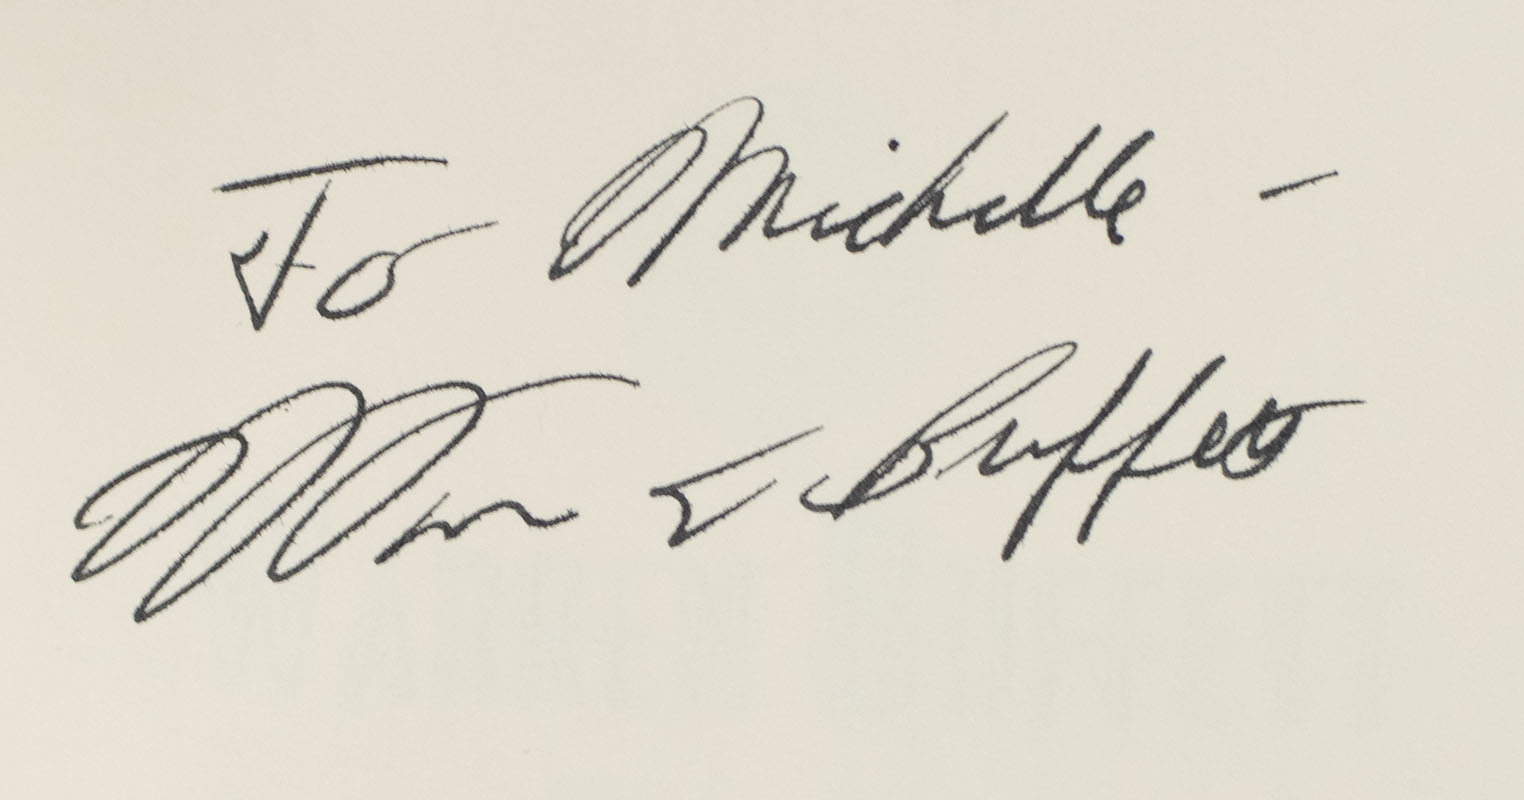 To Michelle -
Warren E Buffett